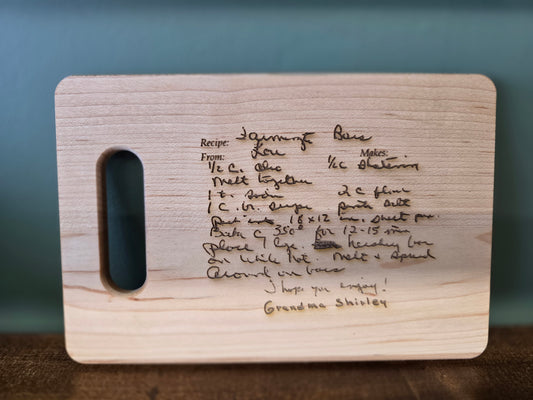 Recipe: Bars
From: Lou Makes:
1/2 C. oleo 1/2 C shortening
Melt together
1 t. soda 2 C flour
1 C br. sugar salt
put into 18 x 12 in. sheet pan.
Bake @ 350° for 12-15 min
place 1 lge. Hershey bar
on while hot. Melt & spread
around on bars
I hope you enjoy!
Grandma Shirley